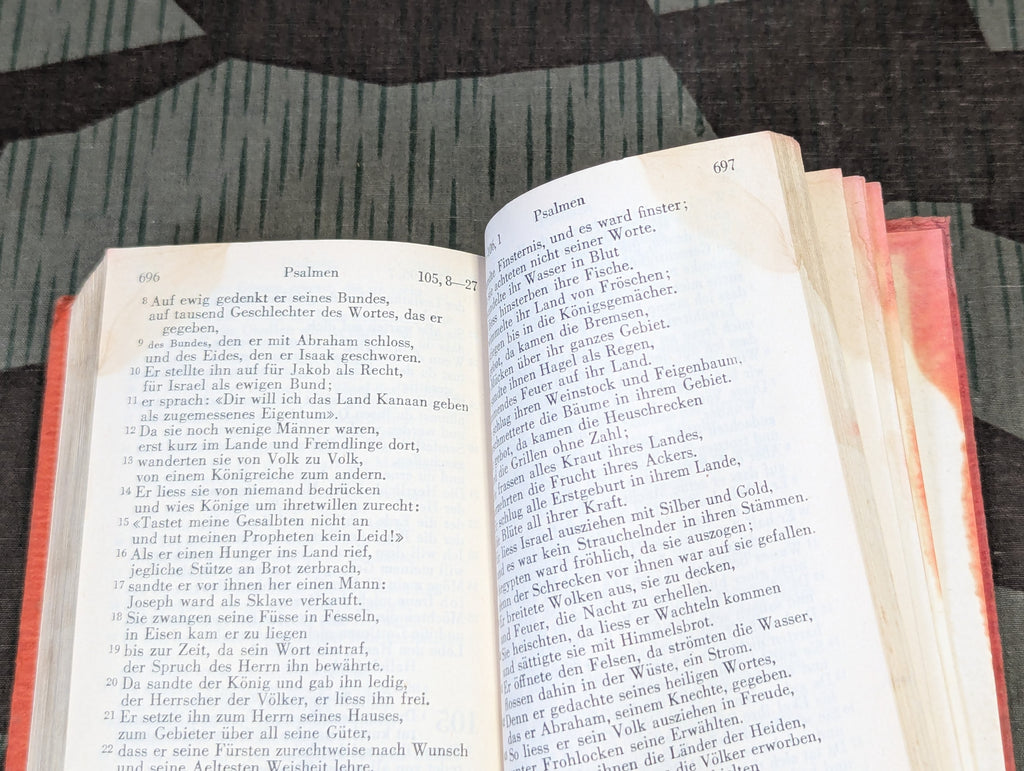 696 Psalmen 105, 8—27
8 Auf ewig gedenkt er seines Bundes,
auf tausend Geschlechter des Wortes, das er
gegeben,
9 des Bundes, den er mit Abraham schloss,
und des Eides, den er Isaak geschworen.
10 Er stellte ihn auf für Jakob als Recht,
für Israel als ewigen Bund;
11 er sprach: «Dir will ich das Land Kanaan geben
als zugemessenes Eigentum».
12 Da sie noch wenige Männer waren,
erst kurz im Lande und Fremdlinge dort,
13 wanderten sie von Volk zu Volk,
von einem Königreiche zum andern.
14 Er liess sie von niemand bedrücken
und wies Könige um ihretwillen zurecht:
15 «Tastet meine Gesalbten nicht an
und tut meinen Propheten kein Leid!»
16 Als er einen Hunger ins Land rief,
jegliche Stütze an Brot zerbrach,
17 sandte er vor ihnen her einen Mann:
Joseph ward als Sklave verkauft.
18 Sie zwangen seine Füsse in Fesseln,
in Eisen kam er zu liegen
19 bis zur Zeit, da sein Wort eintraf,
der Spruch des Herrn ihn bewährte.
20 Da sandte der König und gab ihn ledig,
der Herrscher der Völker, er liess ihn frei.
21 Er setzte ihn zum Herrn seines Hauses,
zum Gebieter über all seine Güter,
22 dass er seine Fürsten zurechtweise nach Wunsch
und seine Aeltesten Weisheit lehre.
Psalmen 697
Finsternis, und es ward finster;
achteten nicht seiner Worte.
ihr Wasser in Blut
hinsterben ihre Fische.
ihr Land von Fröschen;
bis in die Königsgemächer.
da kamen die Bremsen,
über ihr ganzes Gebiet.
ihnen Hagel als Regen,
Feuer auf ihr Land.
ihren Weinstock und Feigenbaum.
die Bäume in ihrem Gebiet.
da kamen die Heuschrecken
die Grillen ohne Zahl;
frassen alles Kraut ihres Landes,
die Frucht ihres Ackers.
schlug alle Erstgeburt in ihrem Lande,
Blüte all ihrer Kraft.
liess Israel ausziehen mit Silber und Gold,
es war kein Strauchelnder in ihren Stämmen.
ward fröhlich, da sie auszogen;
der Schrecken vor ihnen war auf sie gefallen.
breitete Wolken aus, sie zu decken,
und Feuer, die Nacht zu erhellen.
Sie heischten, da liess er Wachteln kommen
und sättigte sie mit Himmelsbrot.
Er öffnete den Felsen, da strömten die Wasser,
flossen dahin in der Wüste, ein Strom.
Denn er gedachte seines heiligen Wortes,
das er Abraham, seinem Knechte, gegeben.
So liess er sein Volk ausziehen in Freude,
unter Frohlocken seine Erwählten.
ihnen die Länder der Heiden,
der Völker erworben,